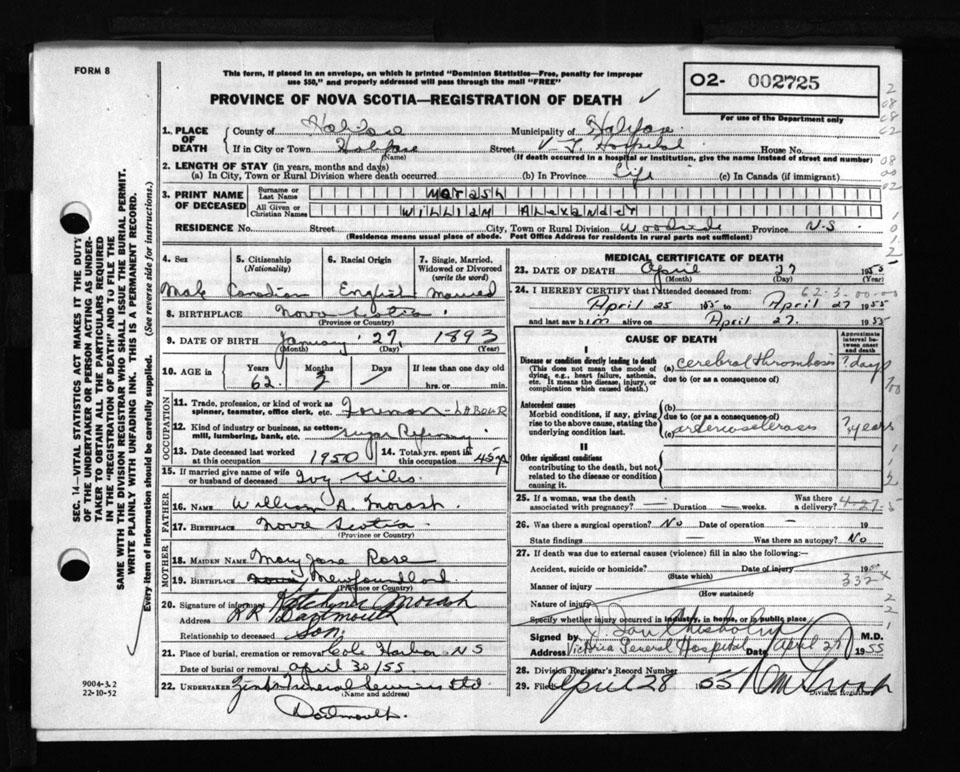 FORM 8
This form, if placed in an envelope, on which is printed "Dominion Statistics—Free, penalty for improper
use $50," and properly addressed will pass through the mail "FREE"
02- 002725
For use of the Department only
PROVINCE OF NOVA SCOTIA—REGISTRATION OF DEATH
1. PLACE OF DEATH
County of Halifax Municipality of Halifax
If in City or Town Halifax Street V G Hospital House No.
(Name) (If death occurred in a hospital or institution, give the name instead of street and number)
2. LENGTH OF STAY (in years, months and days)
(a) In City, Town or Rural Division where death occurred (b) In Province Life (c) In Canada (if immigrant)
3. PRINT NAME OF DECEASED
Surname or Last Name Morash
All Given or Christian Names William Alexander
RESIDENCE No. Street City, Town or Rural Division Woodside Province N.S.
(Residence means usual place of abode. Post Office Address for residents in rural parts not sufficient)
4. Sex 5. Citizenship (Nationality) 6. Racial Origin 7. Single, Married, Widowed or Divorced (write the word)
Male Canadian English Married
8. BIRTHPLACE Nova Scotia
(Province or Country)
9. DATE OF BIRTH January 27, 1893
(Month) (Day) (Year)
10. AGE in Years Months Days If less than one day old
62 3 hrs. or min.
OCCUPATION
11. Trade, profession, or kind of work as spinner, teamster, office clerk, etc. Foreman-LABOUR
12. Kind of industry or business, as cotton-mill, lumbering, bank, etc. Sugar Refinery
13. Date deceased last worked at this occupation 1950 14. Total yrs. spent in this occupation 45 yr
15. If married give name of wife or husband of deceased Ivy Giles
FATHER
16. NAME William A. Morash
17. BIRTHPLACE Nova Scotia
(Province or Country)
MOTHER
18. MAIDEN NAME Mary Jane Rose
19. BIRTHPLACE Newfoundland
(Province or Country)
20. Signature of informant Morash
Address RR Dartmouth
Relationship to deceased Son
21. Place of burial, cremation or removal Cole Harbor NS
Date of burial or removal April 30/55
22. UNDERTAKER Funeral Services Ltd
(Name and address)
Dartmouth
MEDICAL CERTIFICATE OF DEATH
23. DATE OF DEATH April 27 1955
(Month) (Day) (Year)
62-3-00-00
24. I HEREBY CERTIFY that I attended deceased from:
April 25 1955 to April 27 1955
and last saw him alive on April 27. 1955
CAUSE OF DEATH
Approximate interval between onset and death
I
Disease or condition directly leading to death
(This does not mean the mode of dying, e.g., heart failure, asthenia, etc. It means the disease, injury, or complication which caused death.)
(a) cerebral thrombosis ? days
due to (or as a consequence of)
Antecedent causes
Morbid conditions, if any, giving rise to the above cause, stating the underlying condition last.
(b)
due to (or as a consequence of)
(c) arteriosclerosis ? years
II
Other significant conditions
contributing to the death, but not related to the disease or condition causing it.
25. If a woman, was the death associated with pregnancy? — Duration — weeks. Was there a delivery?
4-27-5
26. Was there a surgical operation? No Date of operation —
State findings — Was there an autopsy? No
27. If death was due to external causes (violence) fill in also the following:—
Accident, suicide or homicide? Date of injury 19
(State which)
332x
Manner of injury
(How sustained)
Nature of injury
Specify whether injury occurred in industry, in home, or in public place
Signed by J. Ian Chisholm M.D.
Address Victoria General Hospital Date April 27 1955
28. Division Registrar's Record Number
29. Filed April 28 1955
Division Registrar
SEC. 14—VITAL STATISTICS ACT MAKES IT THE DUTY
OF THE UNDERTAKER OR PERSON ACTING AS UNDER-
TAKER TO OBTAIN ALL THE PARTICULARS REQUIRED
IN THE "REGISTRATION OF DEATH" AND TO FILE THE
SAME WITH THE DIVISION REGISTRAR WHO SHALL ISSUE THE BURIAL PERMIT.
WRITE PLAINLY WITH UNFADING INK. THIS IS A PERMANENT RECORD.
Every item of information should be carefully supplied. (See reverse side for instructions.)
9004-3.2
22-10-52